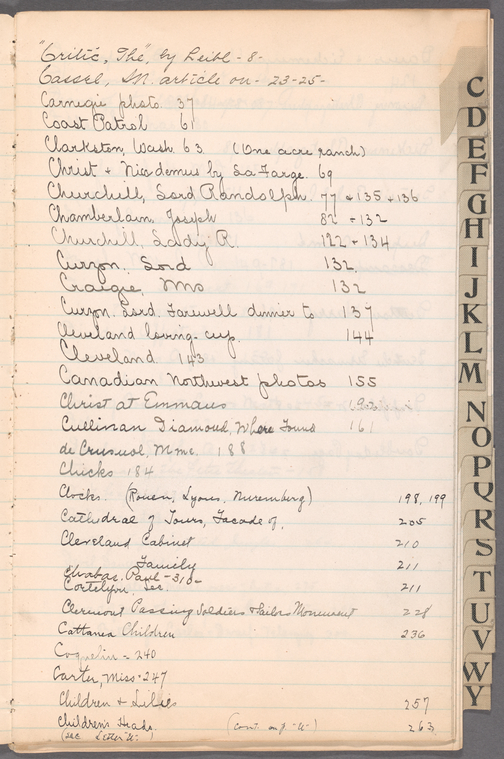 "Critic, The", by Leibl - 8 -
Cassel, Sn. article on - 23-25 -
Carnegie photo 37
Coast Patrol 61
Clarkston, Wash 63 (One acre ranch)
Christ + Nicodemus by La Farge. 69
Churchill, Lord Randolph. 77 + 135 + 136
Chamberlain, Joseph 82 + 132
Churchill, Lady R. 122 + 134
Curzon, Lord 132
Craigie, Mrs 132
Curzon, Lord. Farewell dinner to 137
Cleveland loving-cup. 144
Cleveland 143
Canadian Northwest photos 155
Christ at Emmaus
Cullinan Diamond, Where Found 161
de Crussol, Mme. 188
Chicks 184
Clocks. (Rouen, Lyons, Nuremberg) 198, 199
Cathedral of Tours, Facade of, 205
Cleveland Cabinet 210
Family 211
Chabas, Paul - 310 -
Cortelyou, Sec. 211
Clermont Passing Soldiers + Sailors Monument 228
Cattanea Children 236
Coquelin - 240
Carter, Miss - 247
Children + Lilies 257
Children's Heads. (cont. on p. "U") 263
(see Letter "U")
C
D
E
F
G
H
I
J
K
L
M
N
O
P
Q
R
S
T
U
V
W
Y